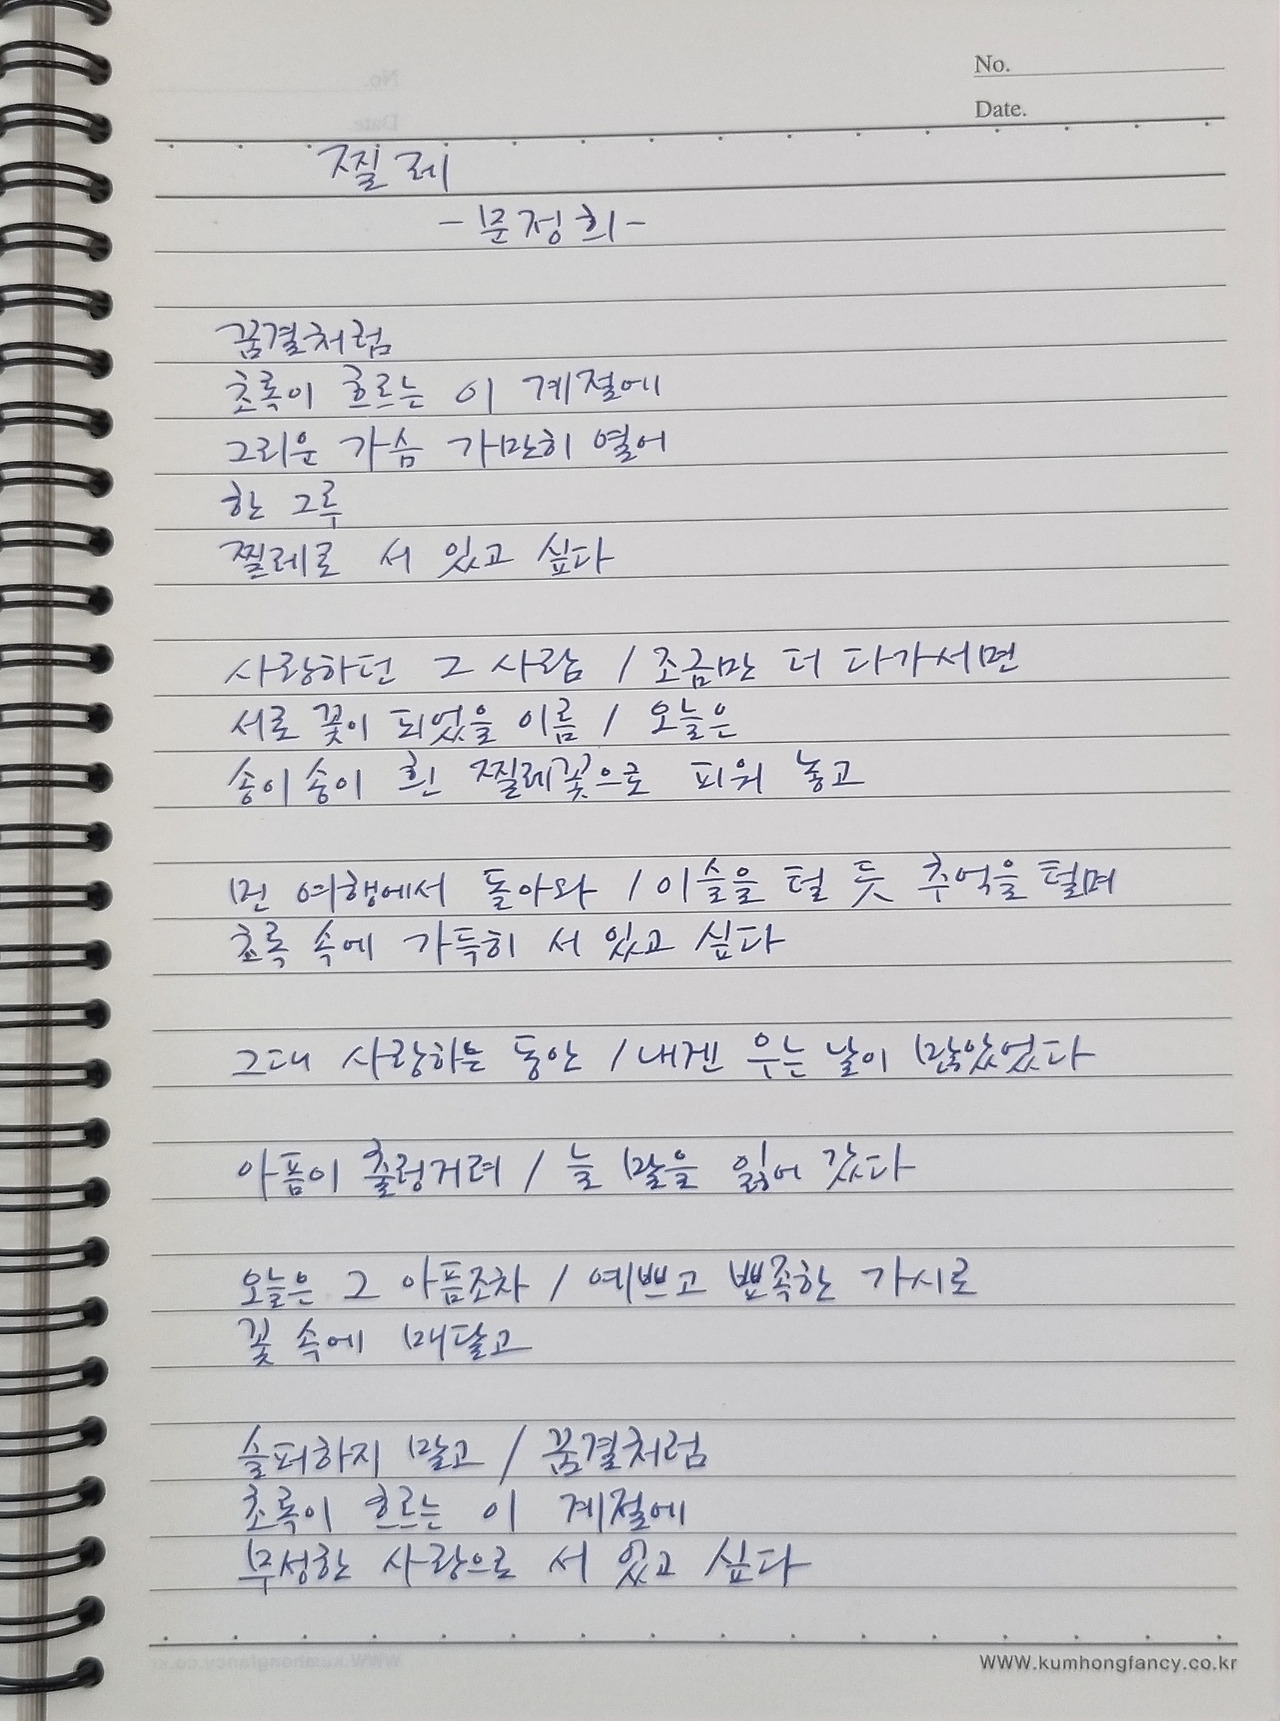 No.
Date.
찔레
-문정희-
꿈결처럼
초록이 흐르는 이 계절에
그리운 가슴 가만히 열어
한 그루
찔레로 서 있고 싶다
사랑하던 그 사람 / 조금만 더 다가서면
서로 꽃이 되었을 이름 / 오늘은
송이송이 흰 찔레꽃으로 피워 놓고
먼 여행에서 돌아와 / 이슬을 털 듯 추억을 털며
초록 속에 가득히 서 있고 싶다
그대 사랑하는 동안 / 내겐 우는 날이 많았었다
아픔이 출렁거려 / 늘 말을 잃어 갔다
오늘은 그 아픔조차 / 예쁘고 뾰족한 가시로
꽃 속에 매달고
슬퍼하지 말고 / 꿈결처럼
초록이 흐르는 이 계절에
무성한 사랑으로 서 있고 싶다
WWW.kumhongfancy.co.kr